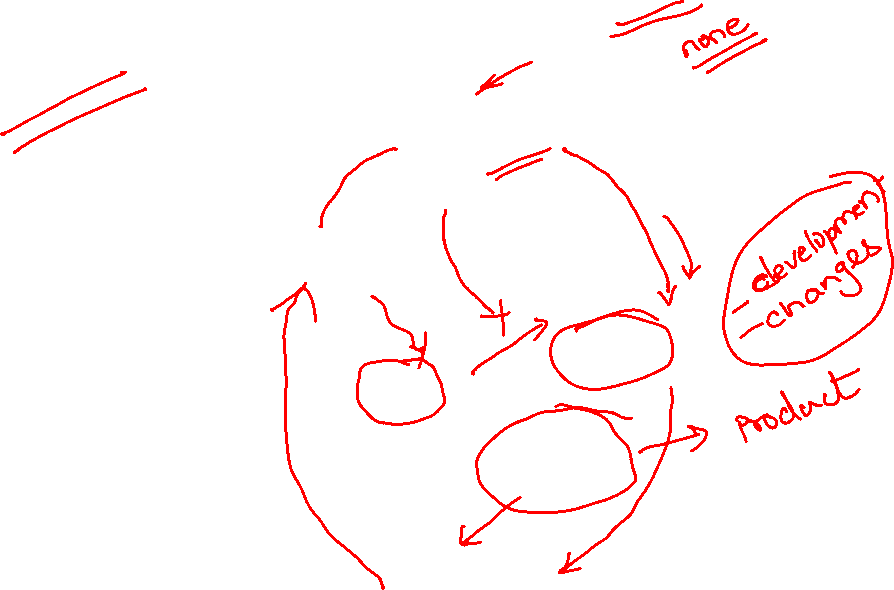 none
- developmen
- changes
Product